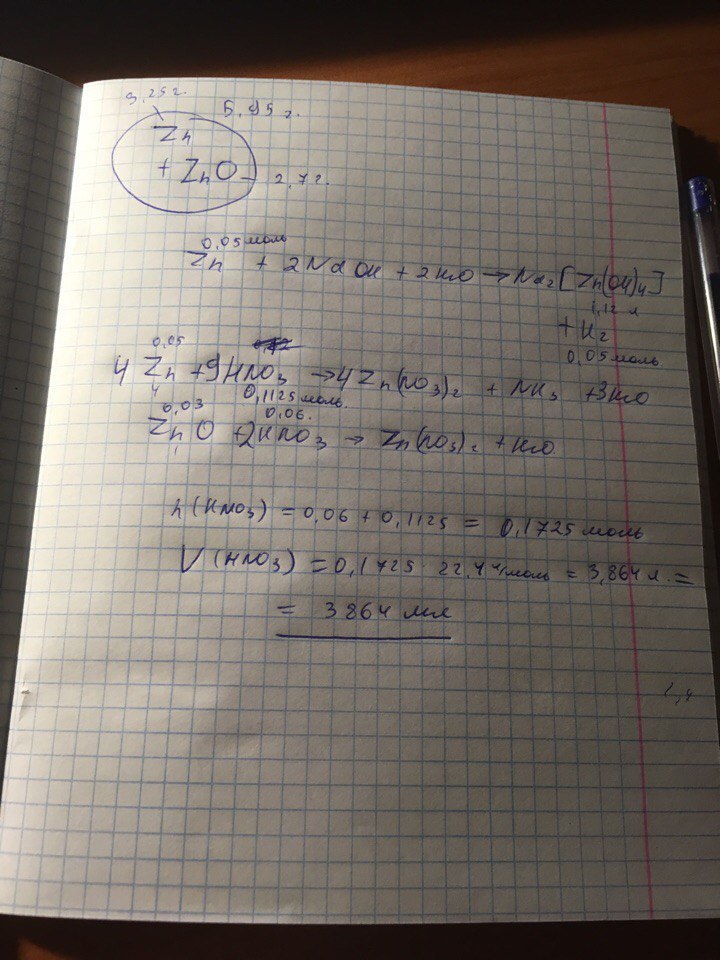 3,25 г.
5,95 г.
Zn
+ ZnO - 2,7 г.
0,05 моль
Zn + 2NaOH + 2H2O → Na2[Zn(OH)4]
1,12 л
+ H2
0,05 моль
0,05
4Zn + 9HNO3 → 4Zn(NO3)2 + NH3 + 3H2O
4 0,1125 моль.
0,03 0,06.
ZnO + 2HNO3 → Zn(NO3)2 + H2O
1
n(HNO3) = 0,06 + 0,1125 = 0,1725 моль
V(HNO3) = 0,1725 · 22,4 л/моль = 3,864 л. =
= 3864 мл